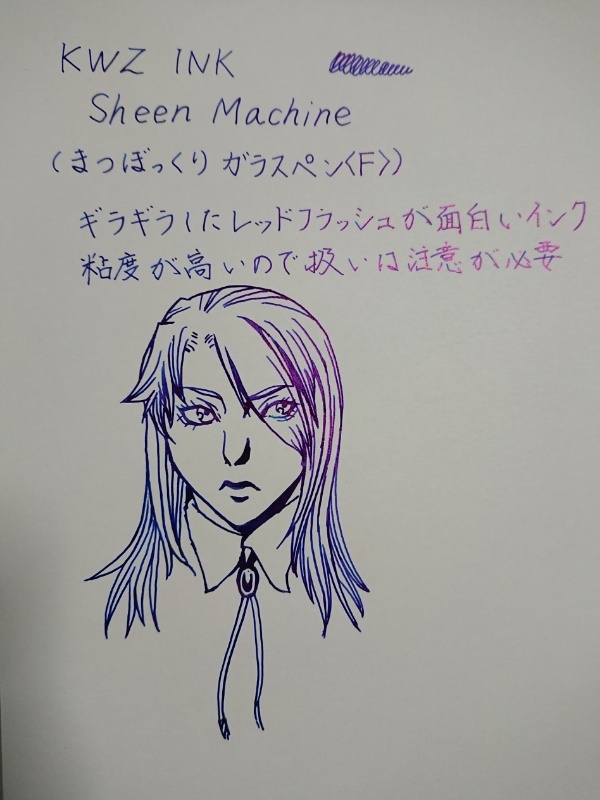 KWZ INK
Sheen Machine
(まつぼっくり ガラスペン〈F〉)
ギラギラしたレッドフラッシュが面白いインク
粘度が高いので扱いは注意が必要